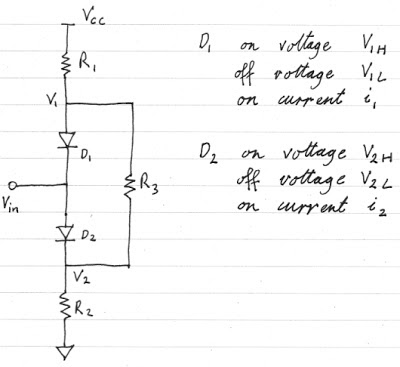 Vcc
R1
V1
D1
R3
Vin
D2
V2
R2
D1 on voltage V1H
off voltage V1L
on current i1
D2 on voltage V2H
off voltage V2L
on current i2